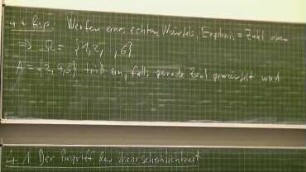 4.4 Bsp. Werfen eines echten Würfels, Ergebnis = Zahl
⇒ Ω = {1,2, , 6}
A = {2,4,6} tritt ein, falls gerade Zahl gewürfelt wird
4.1 Der Begriff der Wahrscheinlichkeit